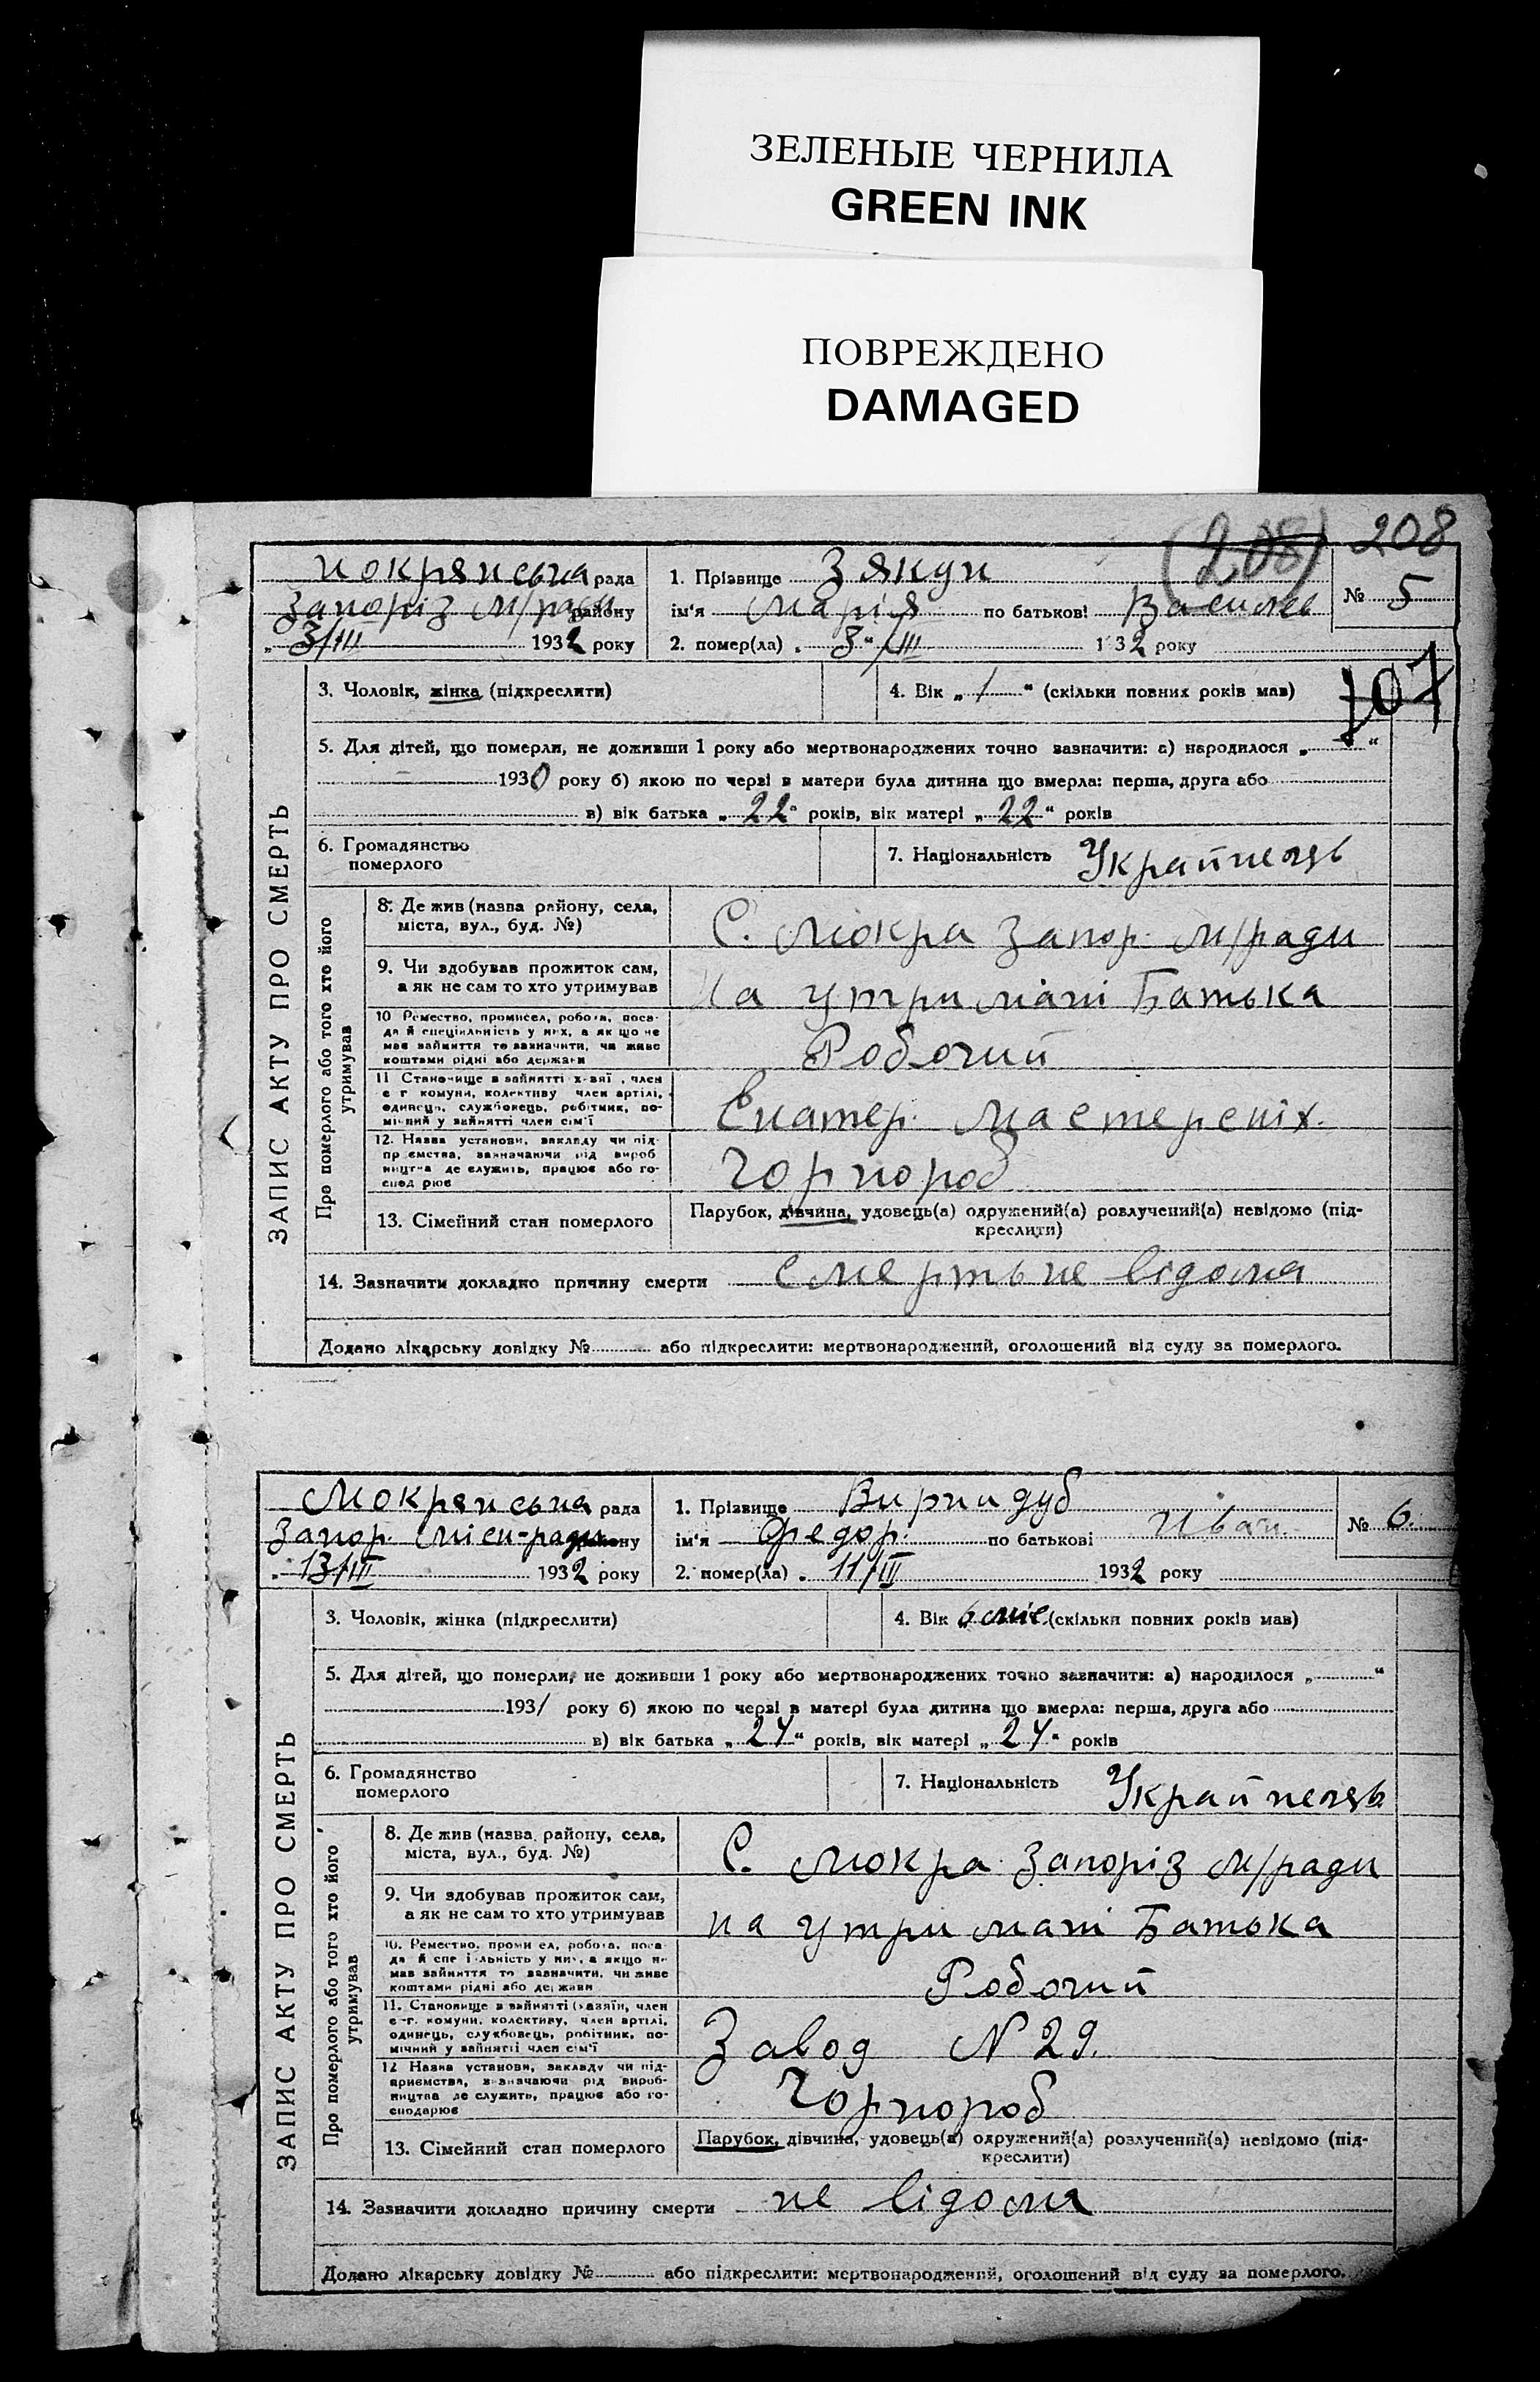 ЗЕЛЕНЫЕ ЧЕРНИЛА
GREEN INK
ПОВРЕЖДЕНО
DAMAGED
(208) 208
Мокрянська рада
Запоріз м/ради району
„ 3/III 1932 року
1. Прізвище Зякун
ім'я Марія по батькові Василев
2. помер(ла) „ 3 " / III 1932 року
№ 5
107
ЗАПИС АКТУ ПРО СМЕРТЬ
3. Чоловік, жінка (підкреслити)
4. Вік „ 1 " (скільки повних років мав)
5. Для дітей, що померли, не доживши 1 року або мертвонароджених точно зазначити: а) народилося „ "
1930 року б) якою по черзі в матери була дитина що вмерла: перша, друга або
в) вік батька „ 22 " років, вік матері „ 22 " років
6. Громадянство
померлого
7. Національність Украйнець
Про померлого або того хто його
утримував
8. Де жив (назва району, села,
міста, вул., буд. №)
С. Мокра Запор. м/ради
9. Чи здобував прожиток сам,
а як не сам то хто утримував
На утримані Батька
10 Ремество, промисел, робота, поса-
да й спеціяльність у них, а як що не
мав зайняття то зазначити, чи живе
коштами рідні або держави
Робочий
11 Становище в зайнятті х-зяї , член
с г комуни, колективу член артілі,
одинець, службовець, робітник, по-
мічний у зайнятті член сім'ї
Екатер. мастерсніх.
12. Назва установи, закладу чи під-
пр ємства, зазначаючи рід вироб
ництва де служить, працює або го-
спод рює
Чорнороб
13. Сімейний стан померлого
Парубок, дівчина, удовець(а) одружений(а) розлучений(а) невідомо (під-
креслити)
14. Зазначити докладно причину смерти смерть не відома
Додано лікарську довідку № або підкреслити: мертвонароджений, оголошений від суду за померлого.
Мокрянська рада
Запор. міск-ради району
„ 13/III 1932 року
1. Прізвище Вирицдуб
ім'я Федор. по батькові Иван.
2. помер(ла) „ 11/III 1932 року
№ 6.
ЗАПИС АКТУ ПРО СМЕРТЬ
3. Чоловік, жінка (підкреслити)
4. Вік „ 6 міс. (скільки повних років мав)
5. Для дітей, що померли, не доживши 1 року або мертвонароджених точно зазначити: а) народилося „ "
1931 року б) якою по черзі в матері була дитина що вмерла: перша, друга або
в) вік батька „ 24 " років, вік матері „ 24 " років
6. Громадянство
померлого
7. Національність Украйнець
Про померлого або того хто його
утримував
8. Де жив (назва району, села,
міста, вул., буд. №)
С. Мокра Запоріз м/ради
9. Чи здобував прожиток сам,
а як не сам то хто утримував
на утримані Батька
10. Ремество, проми ел, робота, поса-
да й спе і льність у них, а якщо не
мав зайняття то зазначити, чи живе
коштами рідні або держави
Робочий
11. Становище в зайнятті (хазяїн, член
с-г. комуни, колективу, член артілі,
одинець, службовець, робітник, по-
мічний у зайнятті член сім'ї
Завод N 29.
12 Назва установи, закладу чи під-
приємства, зазначаючи рід вироб-
ництва де служить, працює або го-
сподарює
Чорнороб
13. Сімейний стан померлого
Парубок, дівчина, удовець(а) одружений(а) розлучений(а) невідомо (під-
креслити)
14. Зазначити докладно причину смерти не відома
Додано лікарську довідку № або підкреслити: мертвонароджений, оголошений від суду за померлого.